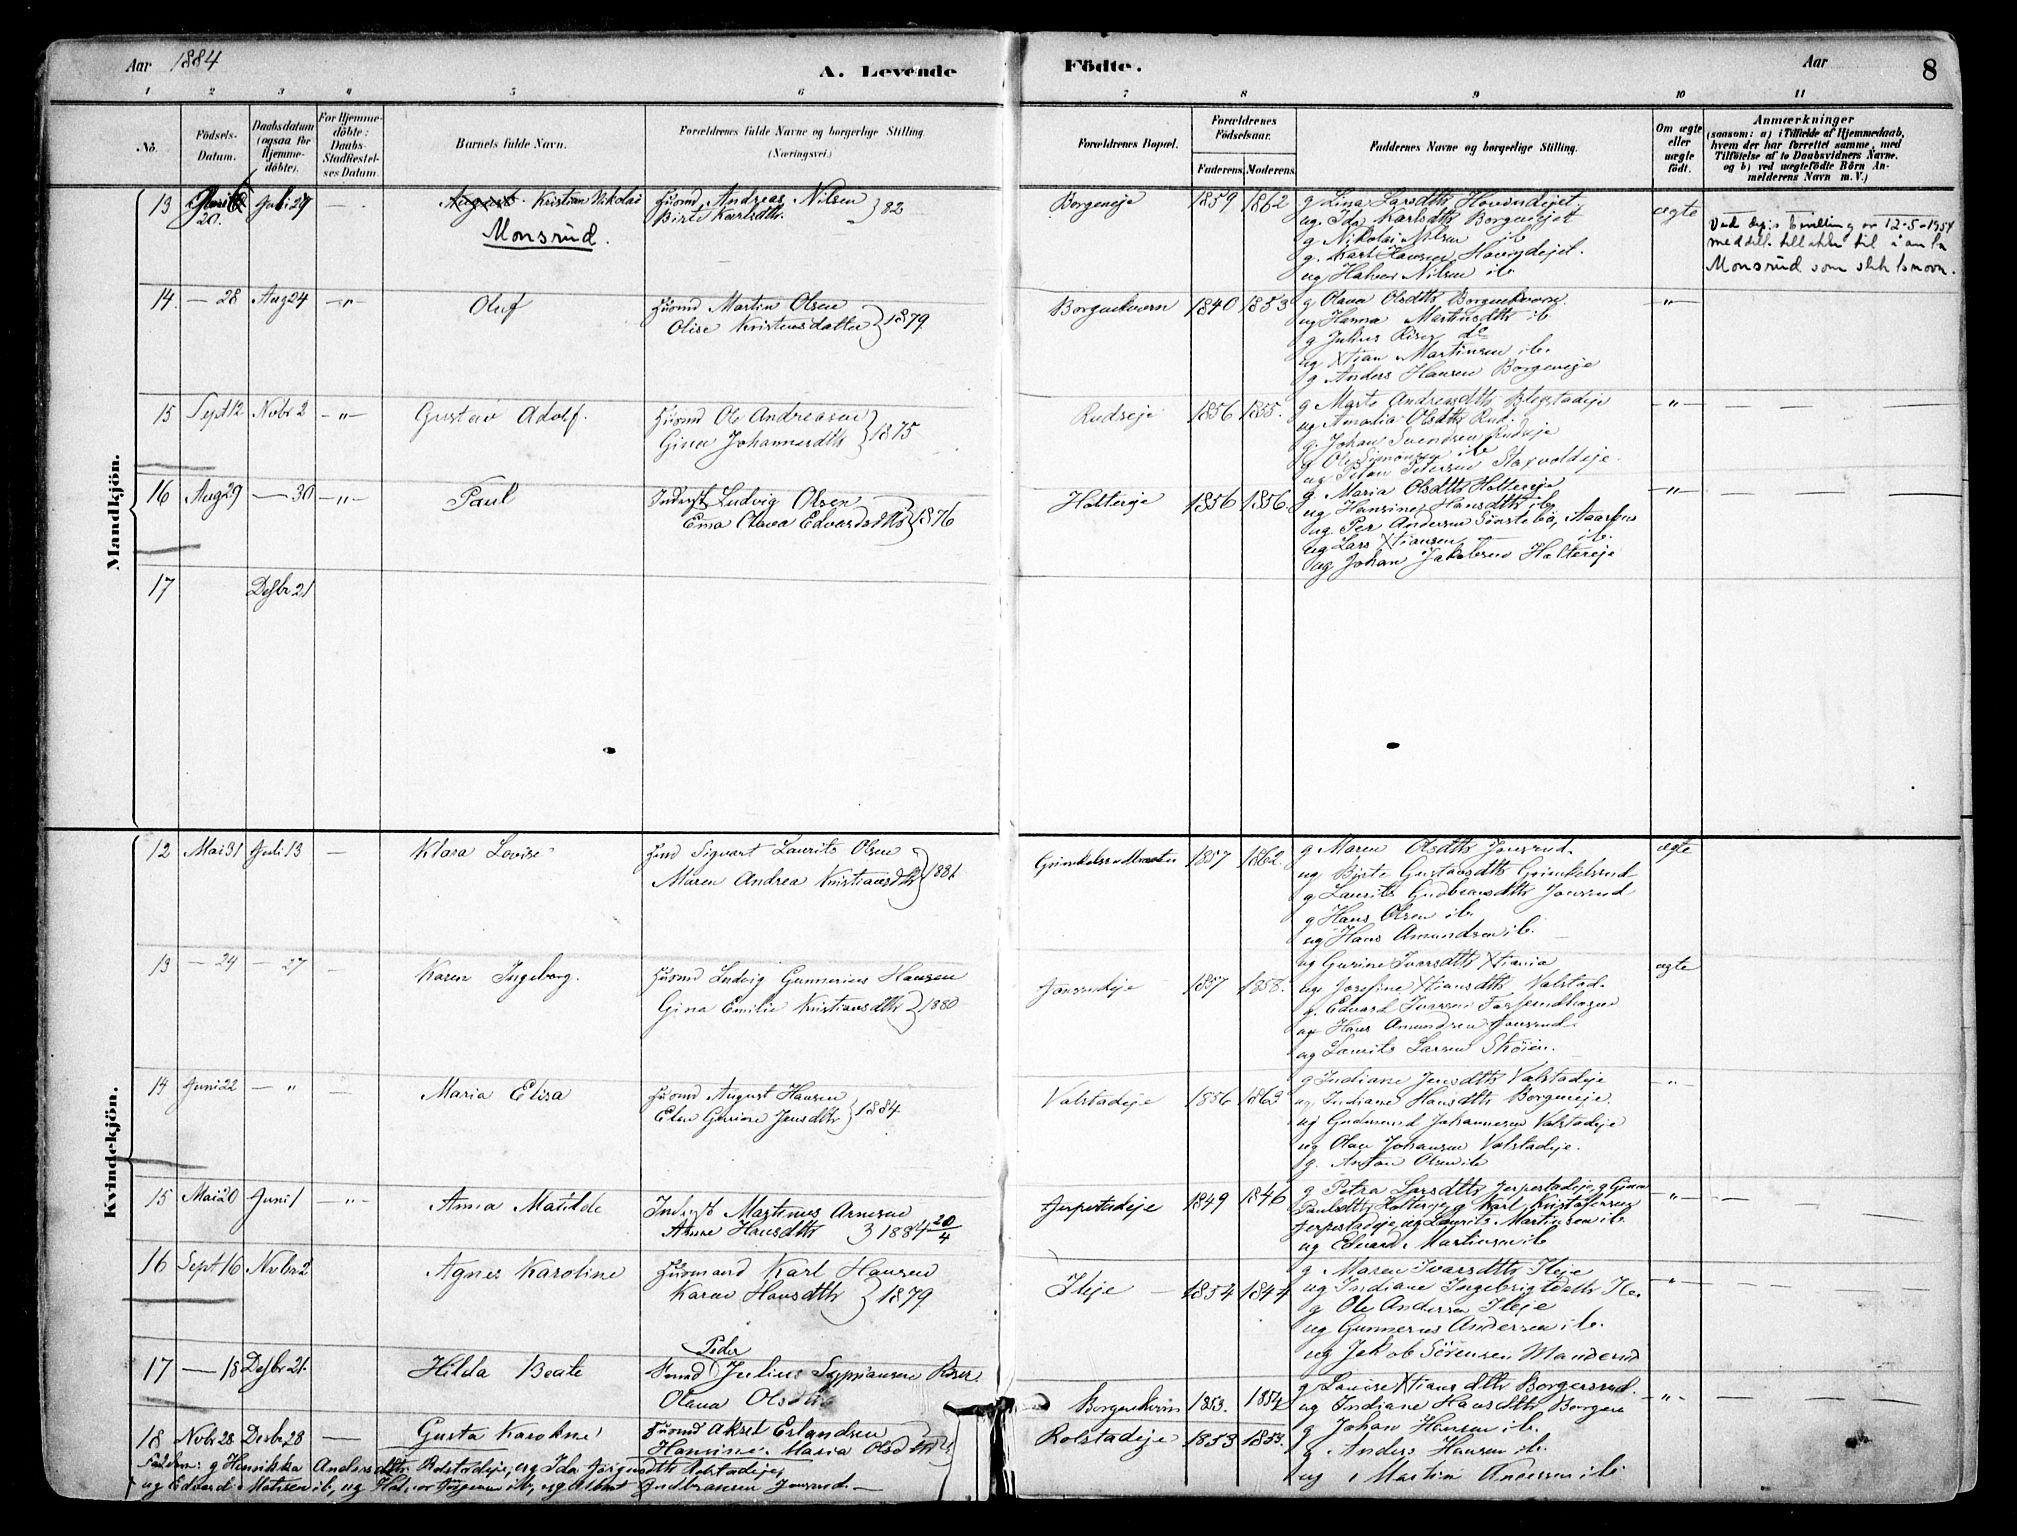 Aar 1884
A. Levende Födte.
Aar
8
1 2 3 4 5 6 7 8 9 10 11
No.
Födsels-Datum.
Daabsdatum (ogsaa for Hjemme-döbte).
For Hjemme-döbte: Daabs-Stadfæstel-ses Datum.
Barnets fulde Navn.
Forældrenes fulde Navne og borgerlige Stilling. (Næringsvei.)
Forældrenes Bopæl.
Forældrenes Födselsaar.
Faderens. Moderens.
Faddernes Navne og borgerlige Stilling.
Om ægte eller uægte födt.
Anmærkninger
(saasom: a) i Tilfælde af Hjemmedaab, hvem der har forrettet samme, med Tilföielse af to Daabsvidners Navne. og b) ved uægtefödte Börn Anmelderens Navn m. V.)
Mandkjön.
13 20. Juli 27 — August Kristian Nikolai Husmd Andreas Nilsen
Birte Karlsdtr. } 82
Monsrud.
Borgeneje 1859 1862 g Lina Larsdtr Hovindejet
ug. Ida Karlsdtr Borgenejet
g Nikolai Nilsen ib
g. Karl Hansen
ug Halvor Nilsen ib.
ægte
12-5-1954
Monsrud som
14. — 28 Aug 24 —"— Oluf Husmd Martin Olsen
Olise Kristensdatter } 1879
Borgenkvern 1840 1853 g Olava Olsdtr Borgenkvern
ug Hanna Martinsdtr ib
g Julius Riser do
ug Xtian Martinsen ib.
g Anders Hansen Borgeneje
—"—
15 Sept 12 Novbr 2 —"— Gustav Adolf. Husmd Ole Andreasen
Gina Johannesdtr } 1875
Rudseje 1856 1855. g Marte Andreasdtr
ug Amalia Olsdtr Rud.
g. Johan Svendsen Rudseje
g Ole Simonsen ib
ug Petersen
—"—
16 Aug 29 — 30 —"— Paul Inderst Ludvig Olsen
Ema Olava Edvardsdtr } 1876
Holtereje 1856 1856. g. Maria Olsdtr Holtereje
ug Hansine Hansdtr ib,
ug Per Andersen Sönstebö, Aasnes
ug Lars Xtiansen ib.
ug Johan Jakobsen Holtereje
—"—
17 Desbr 21
Kvindekjön.
12 Mai 31 Juli 13 — Klara Lovise Sigvart Laurits Olsen
Maren Andrea Kristiansdtr } 1881
1857 1862. g Maren Olsdtr Jonsrud.
ug Birte Gustavsdtr Grimkelsrud
g Laurits Gudbrandsdtr Jonsrud
g Hans Olsen ib.
ug Hans Amundsen ib.
ægte
13 — 24 — 27 — Karen Ingeborg. Husmd Ludvig Gunnerius Hansen
Gina Emilie Kristiansdtr } 1880
Jonsrudeje 1857 1858. ug Gurine Ivarsdtr Xtiania
ug Josefine Xtiansdtr Valstad.
g. Edvard Ivarsen
ug Hans Amundsen Jonsrud.
ug Laurits Larsen Sköien.
ægte
14 Juni 22 — " — Maria Elisa Husmd August Hansen
Elen Gurine Jensdtr } 1884
Valstadeje 1856 1863 g Indiane Jensdtr Valstadeje
ug Indiane Hansdtr Borgeneje
ug Gudmund Johannesen Valstadeje
ug Olav Johansen Valstadeje.
g. Anton Olsen ib
"
15 Mai 20 Juni 1 —"— Anna Matilde Inderst Martinus Arnesen
Anne Hansdtr } 1884 20/4
Jerpestadeje 1849 1846 g Petra Larsdtr Jerpestadeje, g
Paulsdtr Holtereje, g Karl Kristoffersen
Jerpestadeje, ug Laurits Martinsen ib.
ug Edvard Martinsen ib
—"—
16 Sept 16 Novbr 2 Agnes Karoline Husmand Karl Hansen
Karen Hansdtr } 1879
Ileje — 1854 1844 g. Maren Ivarsdtr Ileje
ug Indiane Ingebrigtsdtr
g Ole Andersen Ileje
ug Gunnerus Andersen ib.
ug Jakob Sörensen Manderud
—"—
17 — 18 Desbr 21. Hilda Beate Peder
Julius Riser
Olava Olsdtr
Borgenkvern 1853. 1854 g Lovise Xtiansdtr Borgersrud.
ug Indiane Hansdtr Borgen
g Johan Hansen ib.
g Anders Hansen ib.
ug Martin Andersen ib
—"—
18 Novbr 28 Desbr 28 — Gusta Karoline Husmd Aksel Erlandsen
Hansine Maria Olsdtr
Rolstadeje 1853 1853.
Faddere: g Henrikka Andersdtr Rolstadeje, ug Ida Jörgensdtr Rolstadeje,
ug Edvard Matisen ib, ug Halvor Jörgensen ib, ug Albert Gudbransen Jonsrud. —